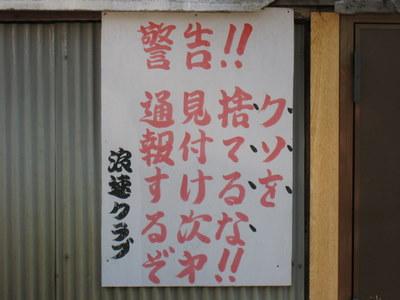 警告!!
クソを
捨てるな!!
見付け次才
通報するぞ
浪速クラブ